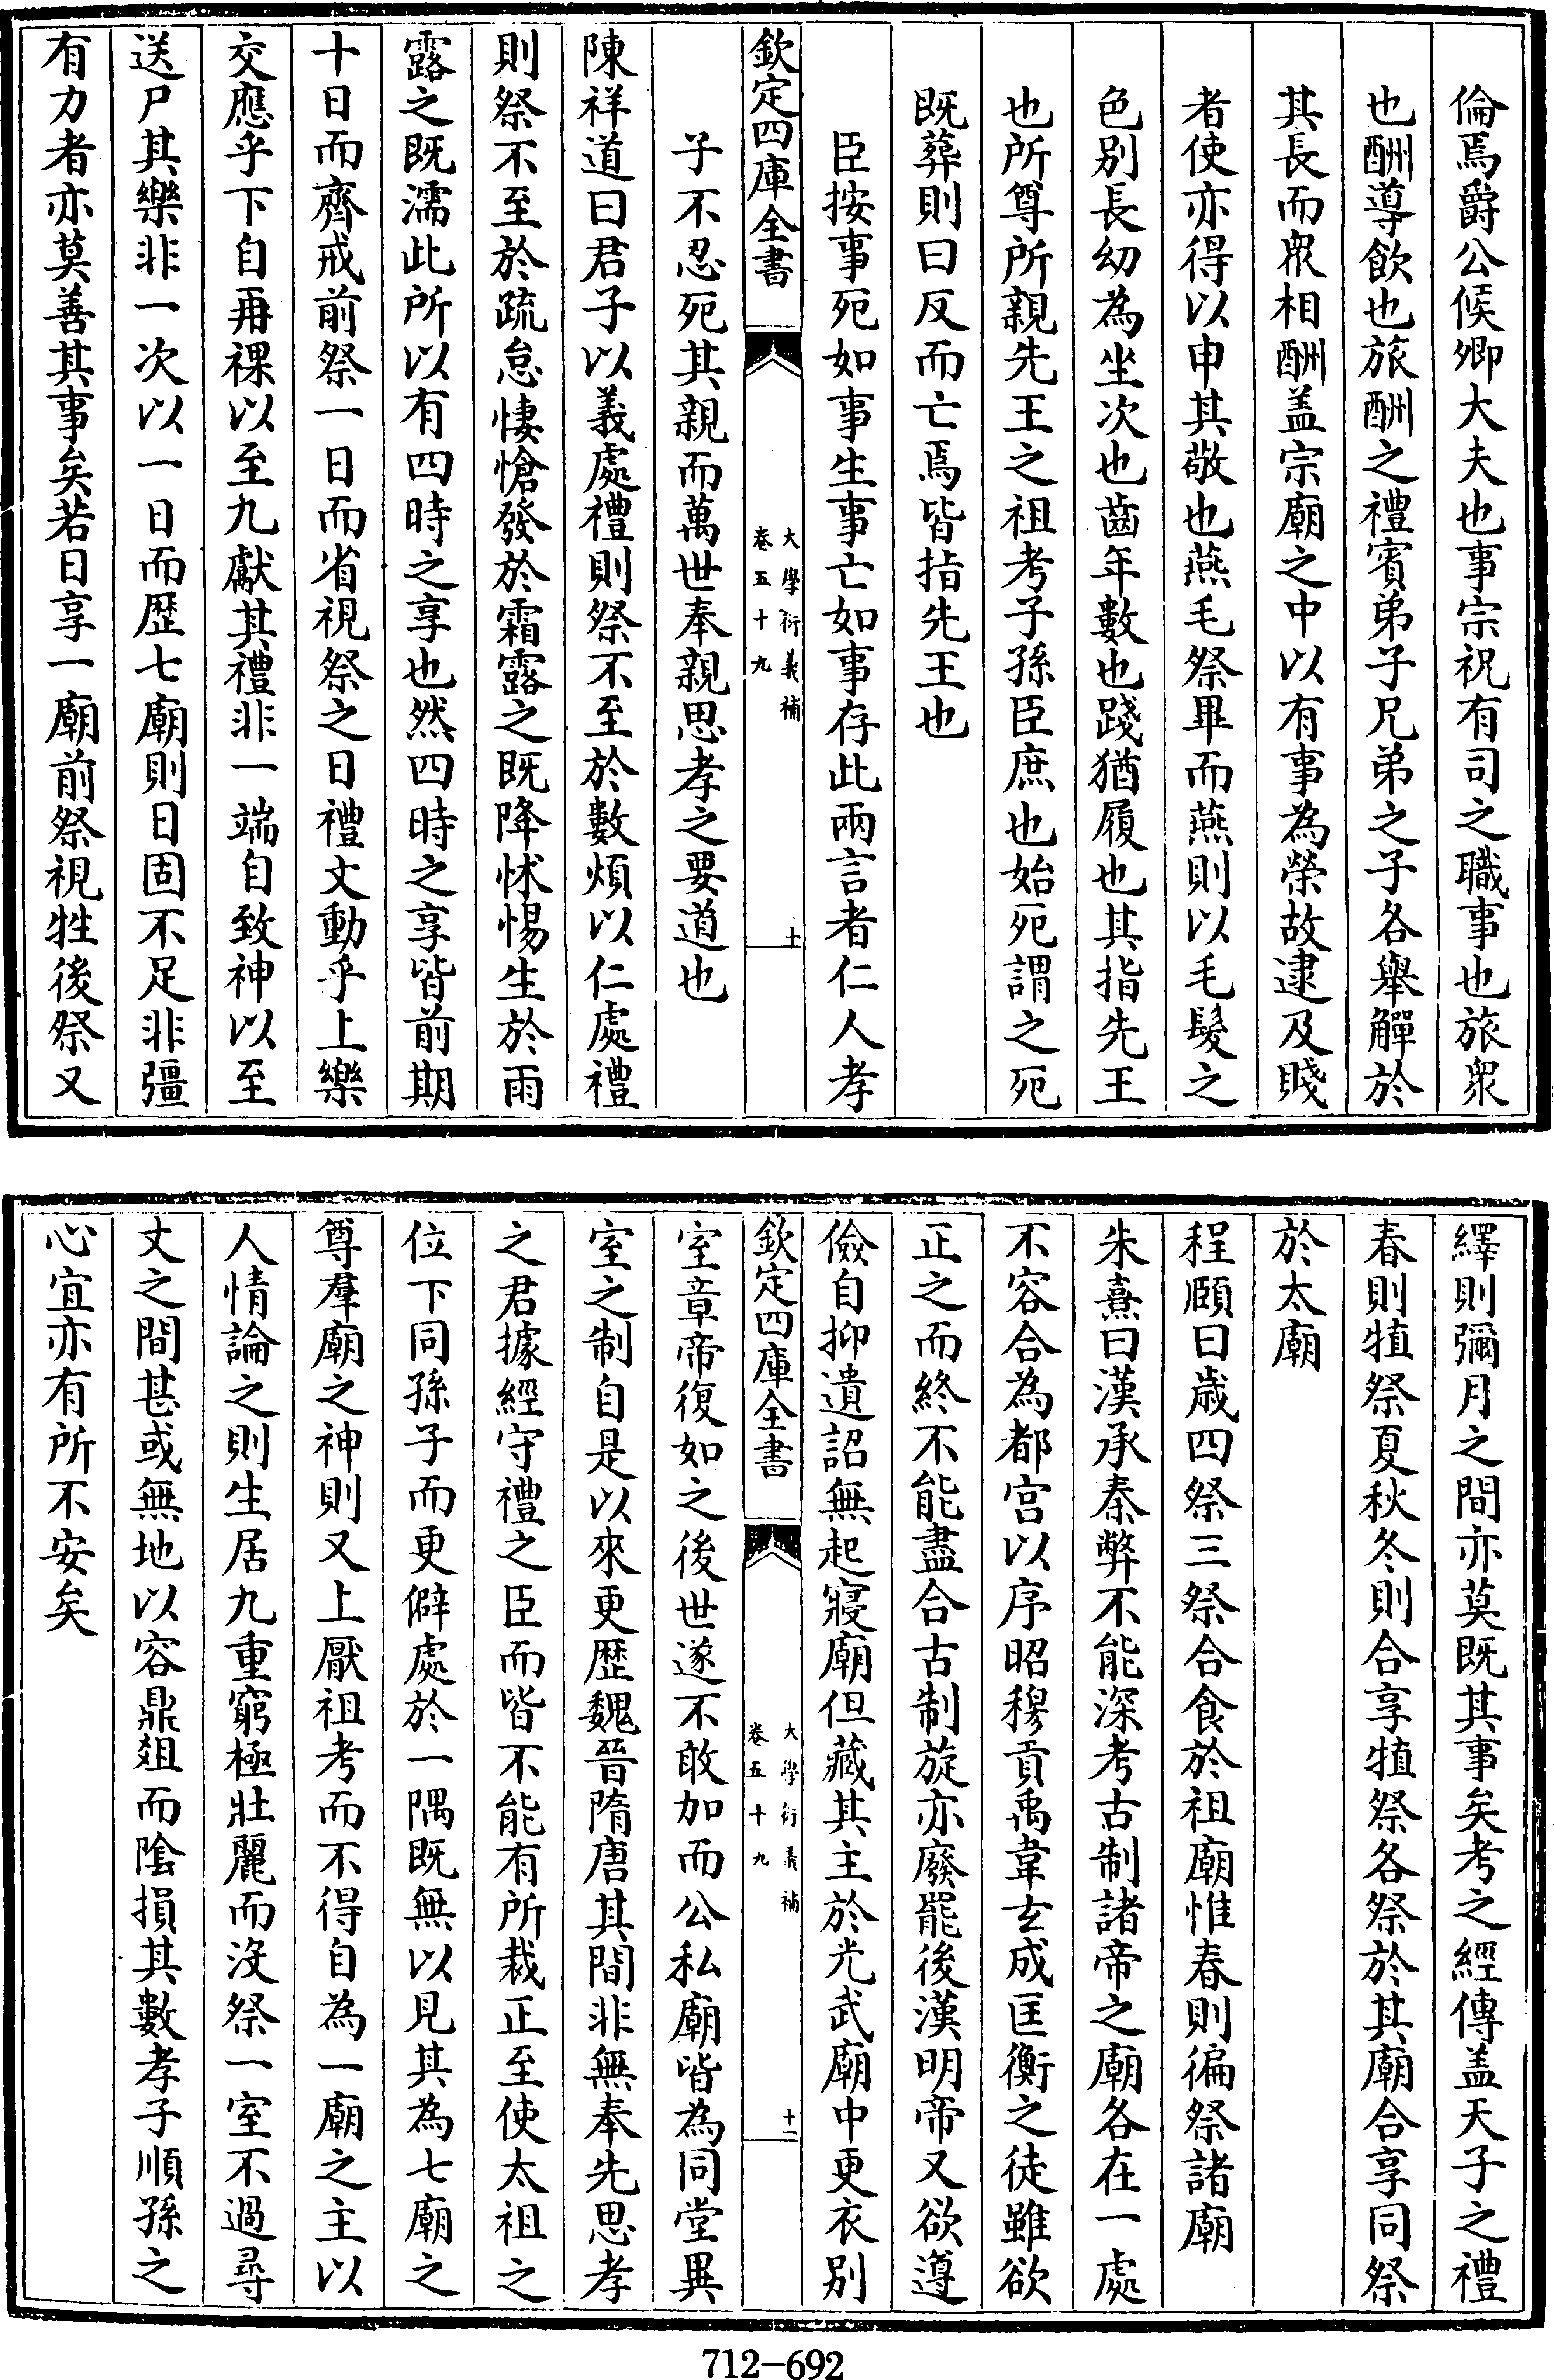 倫焉爵公侯卿大夫也事宗祝有司之職事也旅衆
也酬導飲也旅酬之禮賓弟子兄弟之子各舉觶於
其長而衆相酬盖宗廟之中以有事為榮故逮及賤
者使亦得以申其敬也燕毛祭畢而燕則以毛髮之
色别長幼為坐次也齒年數也踐猶履也其指先王
也所尊所親先王之祖考子孫臣庶也始死謂之死
既葬則曰反而亡焉皆指先王也
臣按事死如事生事亡如事存此兩言者仁人孝
欽定四庫全書
大學衍義補
卷五十九
十
子不忍死其親而萬世奉親思孝之要道也
陳祥道曰君子以義處禮則祭不至於數煩以仁處禮
則祭不至於疏怠悽愴發於霜露之既降怵惕生於雨
露之既濡此所以有四時之享也然四時之享皆前期
十日而齊戒前祭一日而省視祭之日禮文動乎上樂
交應乎下自再祼以至九獻其禮非一端自致神以至
送尸其樂非一次以一日而歴七廟則日固不足非彊
有力者亦莫善其事矣若日享一廟前祭視牲後祭又
繹則彌月之間亦莫既其事矣考之經傳盖天子之禮
春則犆祭夏秋冬則合享犆祭各祭於其廟合享同祭
於太廟
程頤曰歳四祭三祭合食於祖廟惟春則徧祭諸廟
朱熹曰漢承秦弊不能深考古制諸帝之廟各在一處
不容合為都宫以序昭穆貢禹韋玄成匡衡之徒雖欲
正之而終不能盡合古制旋亦廢罷後漢明帝又欲遵
儉自抑遺詔無起寢廟但藏其主於光武廟中更衣别
欽定四庫全書
大學衍義補
卷五十九
十一
室章帝復如之後世遂不敢加而公私廟皆為同堂異
室之制自是以來更歴魏晉隋唐其間非無奉先思孝
之君據經守禮之臣而皆不能有所裁正至使太祖之
位下同孫子而更僻處於一隅既無以見其為七廟之
尊羣廟之神則又上厭祖考而不得自為一廟之主以
人情論之則生居九重窮極壯麗而没祭一室不過尋
丈之間甚或無地以容鼎俎而陰損其數孝子順孫之
心宜亦有所不安矣
712-692